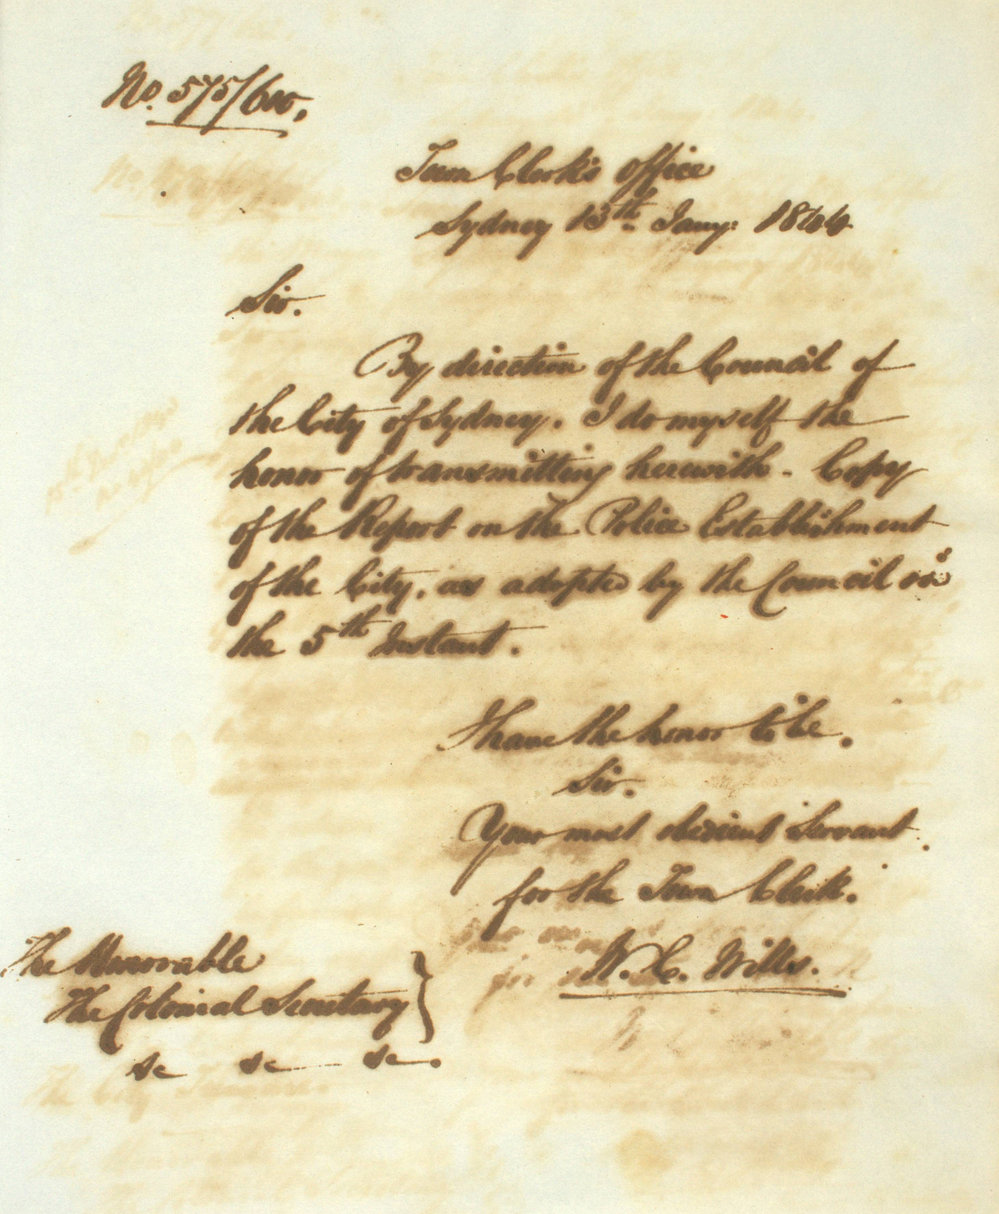 No. 575/600.
Town Clerk's office
Sydney 13th Jany: 1844
Sir.
By direction of the Council of
the City of Sydney. I do myself the
honor of transmitting herewith - Copy
of the Report on the Police Establishment
of the City, as adopted by the Council on
the 5th Instant.
I have the honor to be.
Sir.
Your most obedient Servant.
for the Town Clerk.
W. C. Wills.
The Honorable
The Colonial Secretary
&c &c &c.